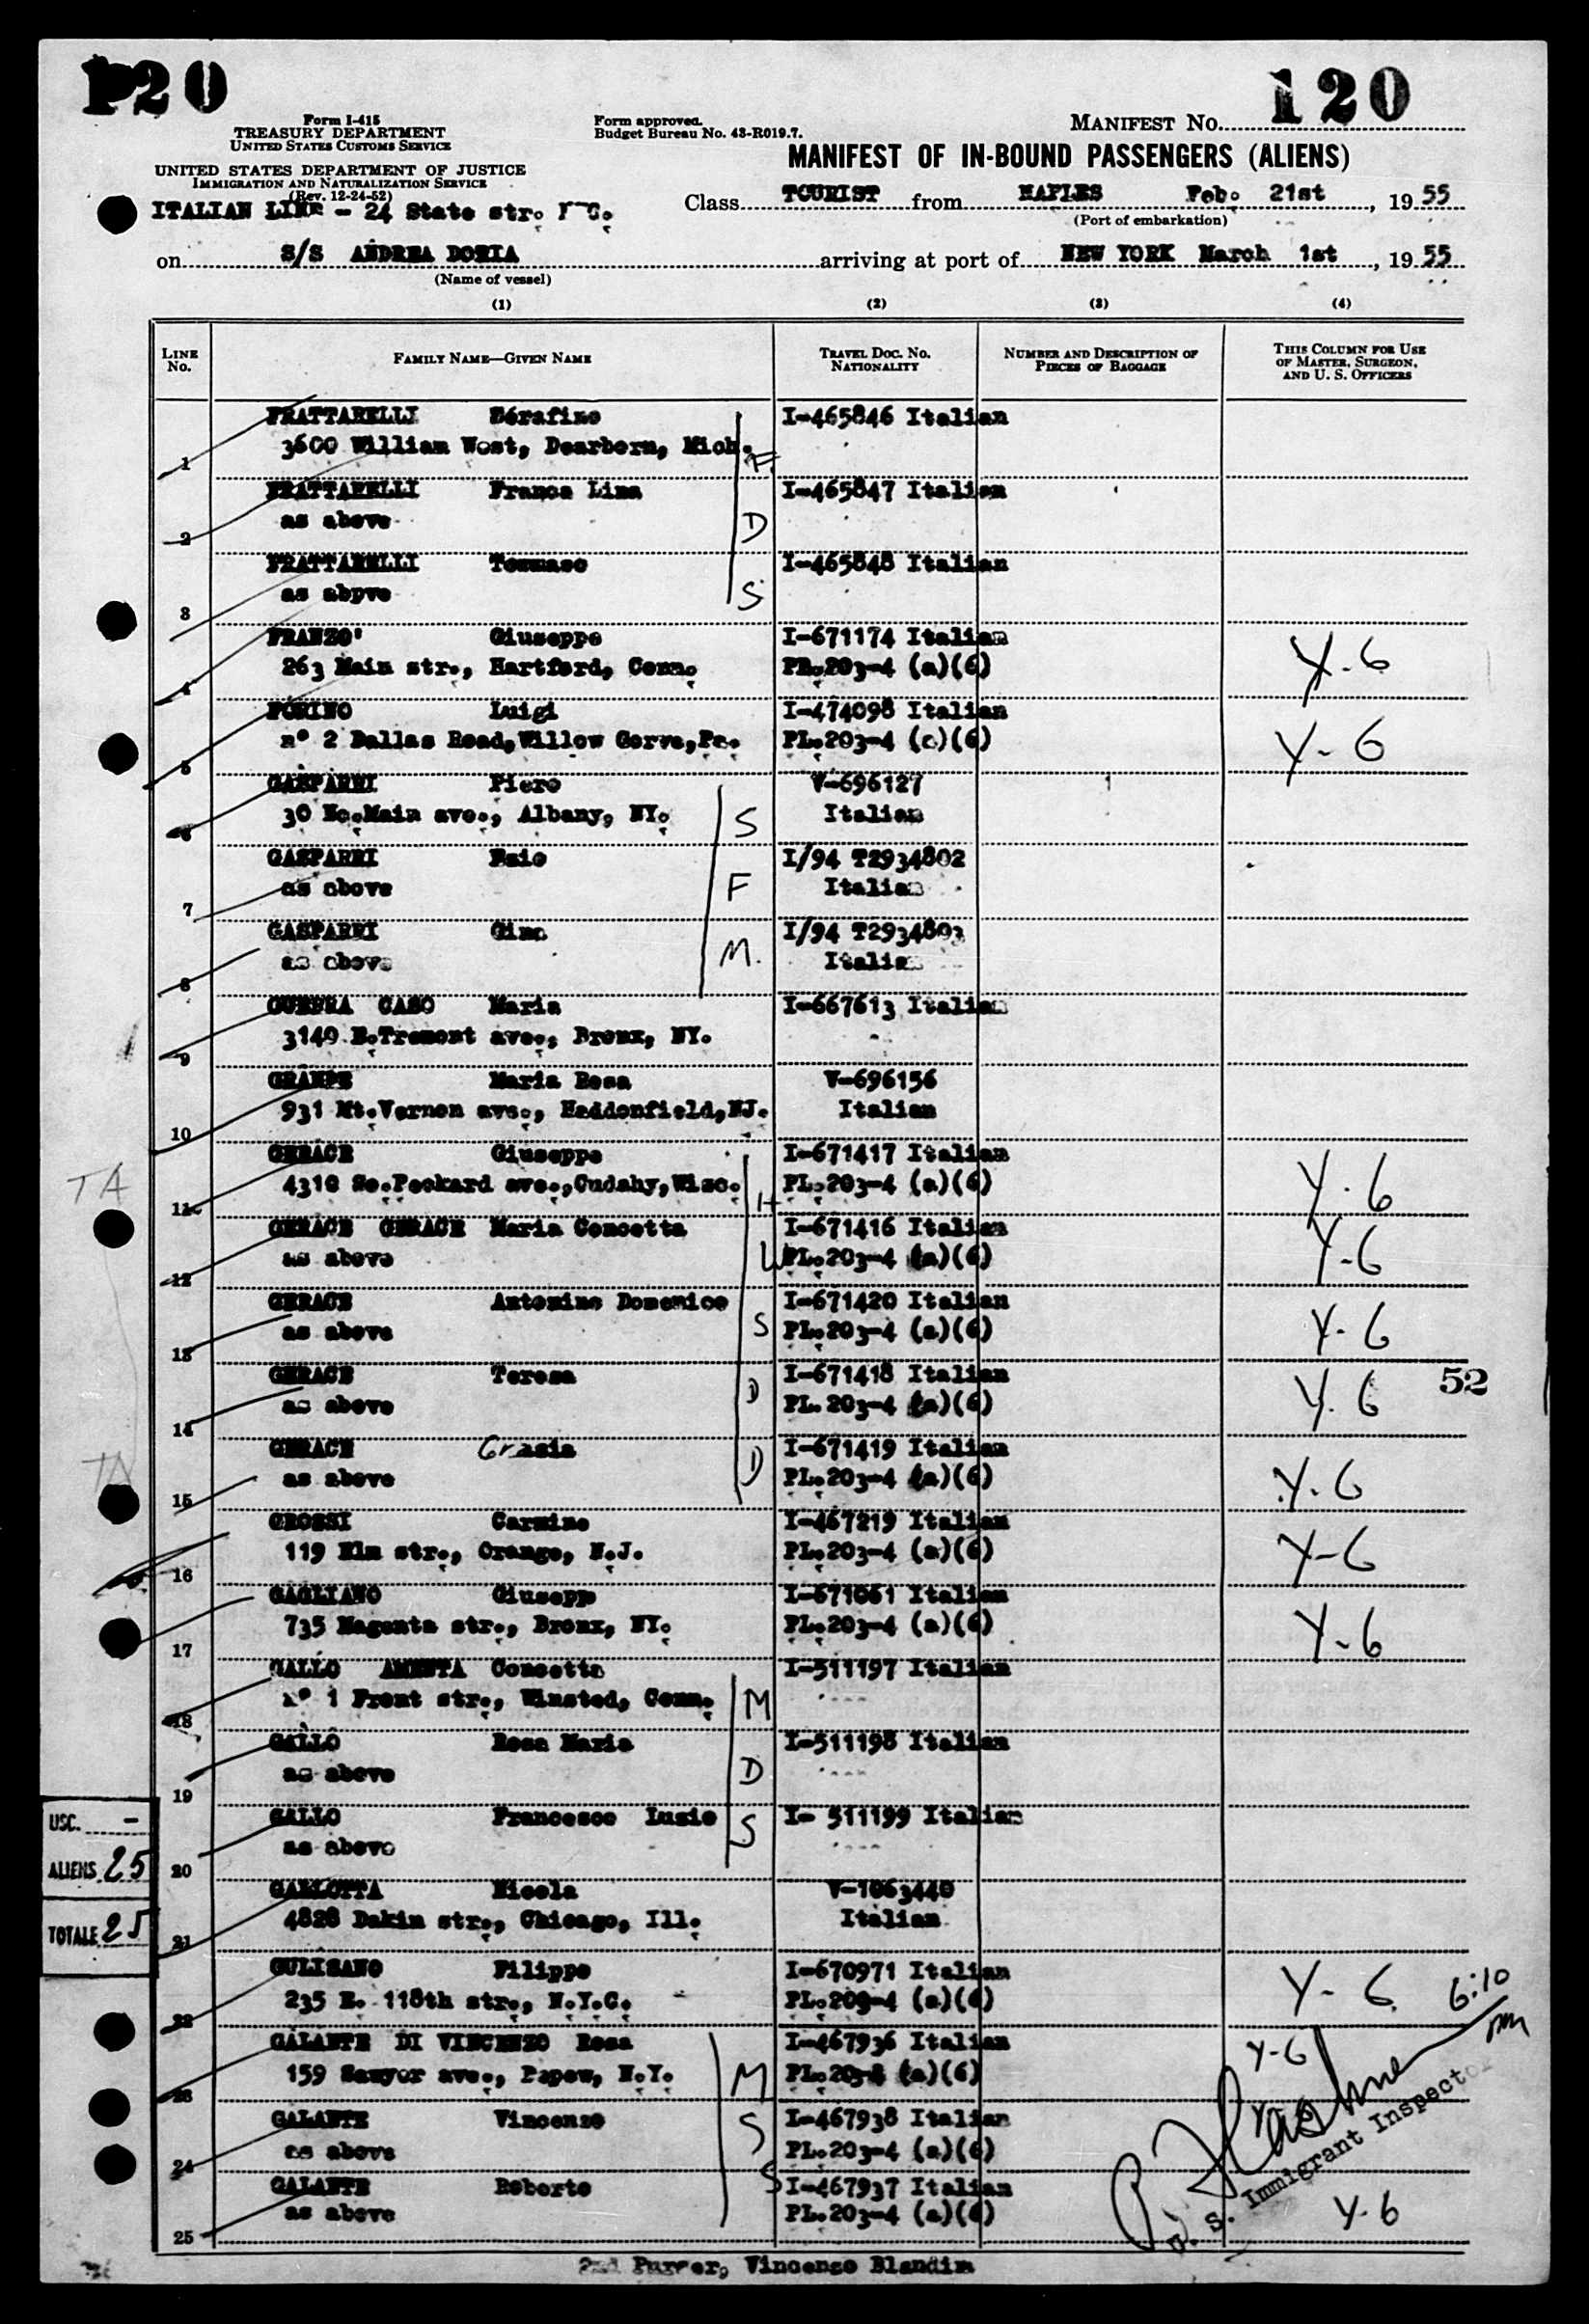 P20
120
Form I-415
TREASURY DEPARTMENT
UNITED STATES CUSTOMS SERVICE
Form approved.
Budget Bureau No. 43-R019.7.
MANIFEST NO.
UNITED STATES DEPARTMENT OF JUSTICE
IMMIGRATION AND NATURALIZATION SERVICE
(Rev. 12-24-52)
MANIFEST OF IN-BOUND PASSENGERS (ALIENS)
ITALIAN LINE - 24 State str.
Class TOURIST from NAPLES Feb. 21st, 1955
(Port of embarkation)
on S/S ANDREA DORIA arriving at port of NEW YORK March 1st, 1955
(Name of vessel)
(1) (2) (3) (4)
LINE No.
FAMILY NAME—GIVEN NAME
TRAVEL DOC. NO. NATIONALITY
NUMBER AND DESCRIPTION OF PIECES OF BAGGAGE
THIS COLUMN FOR USE OF MASTER, SURGEON, AND U. S. OFFICERS
FRATTARELLI Serafino I-465846 Italian
1 3600 William West, Dearborn, Mich. F.
FRATTARELLI Franca Lina I-465847 Italian
2 as above D
FRATTARELLI Tommaso I-465848 Italian
3 as abpve S
FRANZO' Giuseppe I-671174 Italian
4 263 Main str., Hartford, Conn. PL.203-4 (a)(6) Y-6
FORINO Luigi I-474098 Italian
5 n° 2 Dallas Road,Willow Gorve,Pa. PL.203-4 (c)(6) Y-6
GASPARRI Piero V-696127
6 30 No.Main ave., Albany, NY. S Italian
GASPARRI I/94 T2934802
7 as above F Italian
GASPARRI Gino I/94 T2934803
8 as above M. Italian
GUERRA CASO Maria I-667613 Italian
9 3140 E.Tremont ave., Bronx, NY.
Maria Rosa V-696156
10 931 Mt.Vernon ave., Haddonfield,NJ. Italian
GERACE Giuseppe I-671417 Italian
TA
11 4310 So.Packard ave.,Cudahy,Wisc. H PL.203-4 (a)(6) Y-6
GERACE GERACE Maria Concetta I-671416 Italian
12 as above W PL.203-4 (a)(6) Y-6
GERACE Antonino Domenico I-671420 Italian
13 as above S PL.203-4 (a)(6) Y-6
GERACE Teresa I-671418 Italian
14 as above D PL.203-4 (a)(6) Y-6
52
GERACE Grazia I-671419 Italian
TA
15 as above D PL.203-4 (a)(6) Y-6
GROSSI Carmine I-467219 Italian
16 119 Elm str., Orange, N.J. PL.203-4 (a)(6) Y-6
GAGLIANO Giusepp I-671061 Italian
17 735 Magenta str., Bronx, NY. PL.203-4 (a)(6) Y-6
GALLO AMENTA Concetta I-511197 Italian
18 n° 1 Front str., Winsted, Conn. M
GALLO Rosa Maria I-511198 Italian
19 as above D
GALLO Francesco Luzio I- 511199 Italian
20 as above S
USC. -
ALIENS 25
TOTALE 25
GALLOTTA Nicola V-1063440
21 4828 Dakin str., Chicago, Ill. Italian
GULISANO Filippo I-670971 Italian
22 235 E. 118th str., N.Y.C. PL.203-4 (a)(6) Y-6 6:10 pm
GALANTE DI VINCENZO Rosa I-467936 Italian
23 159 Sawyor ave., Papew, N.Y. M PL.203-4 (a)(6) Y-6
GALANTE Vincenzo I-467938 Italian
24 as above S PL.203-4 (a)(6)
U. S. Immigrant Inspector
GALANTE Roberto S I-467937 Italian
25 as above PL.203-4 (a)(6) Y-6
2nd Purser, Vincenzo Blandin